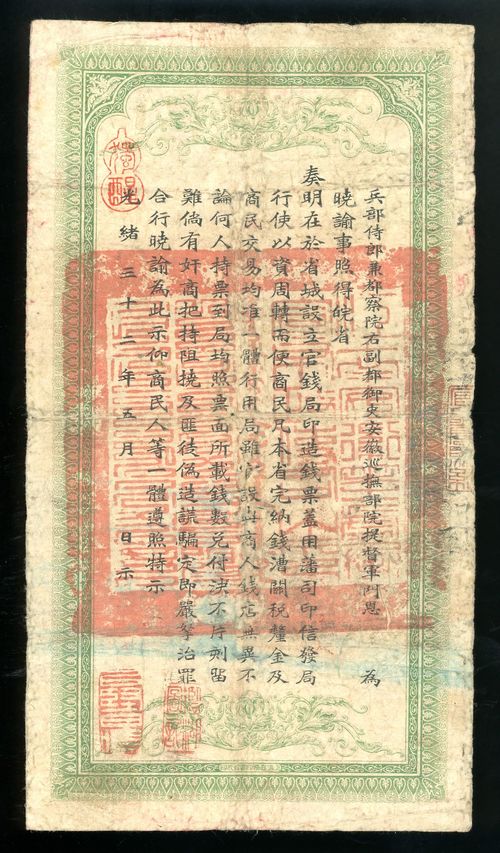 兵部侍郎兼都察院右副都御史安徽巡撫部院提督軍門恩 為
曉諭事照得皖省
奏明在於省城設立官錢局印造錢票蓋用藩司印信發局
行使以資周轉而便商民凡本省完納錢漕關稅釐金及
商民交易均准一體行用局雖官設與商人錢店無異不
論何人持票到局均照票面所載錢數兌付決不片刻留
難倘有奸商把持阻撓及匪徒偽造謀騙定即嚴拏治罪
合行曉諭為此示仰商民人等一體遵照特示
光緒三十二年五月 日示